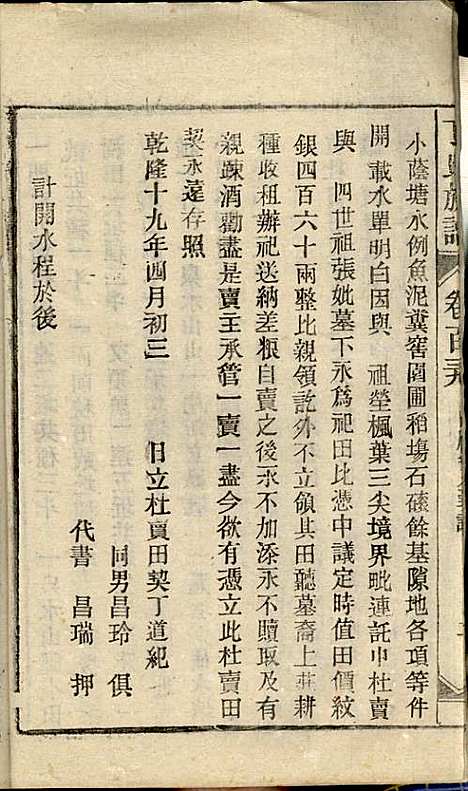 小蔭塘水例魚泥糞窖園圃稻塲石磙餘基隙地各項等件
開載水單明白因與　祖塋楓葉三尖境界毗連託中杜賣
與　四世祖張妣墓下永爲祀田比憑中議定時值田價紋
銀四百六十兩整比親領訖外不立領其田聽墓裔上莊耕
種收租辦祀送納差粮自賣之後永不加添永不贖取及有
親踈酒勸盡是賣主承管一賣一盡今欲有憑立此杜賣田
契永遠存照
乾隆十九年四月初三　日立杜賣田契丁道紀
同男昌玲　俱
代書　昌瑞　押
計開水程於後